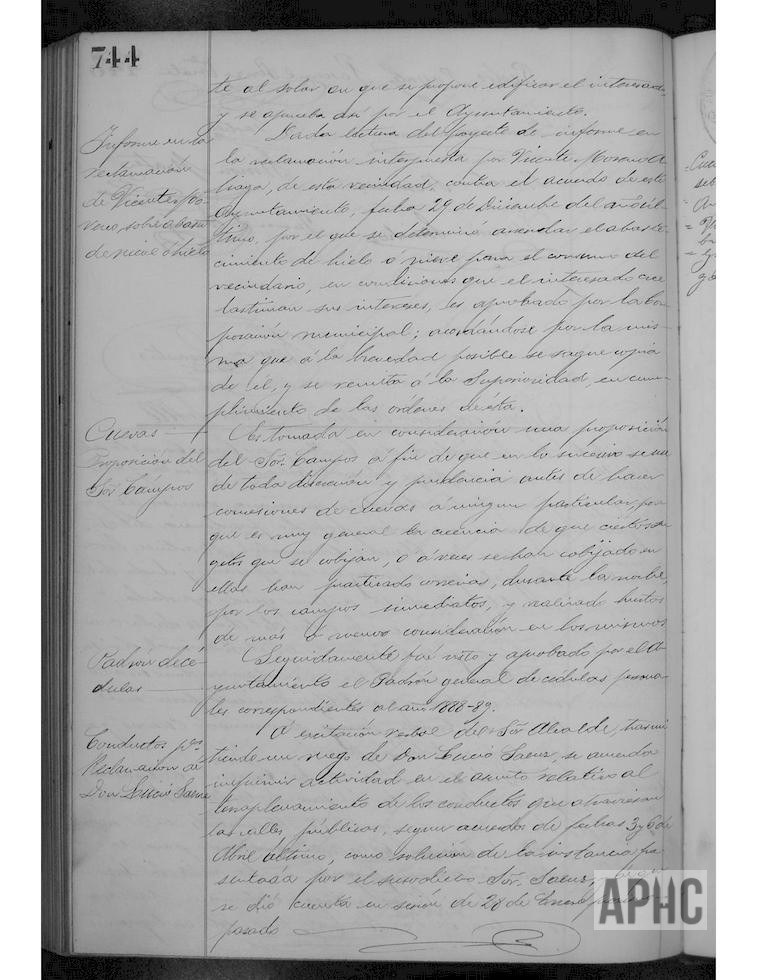 744
te al solar en que se propone edificar el interesado,
y se aprueba así por el Ayuntamiento.
Informe en la
reclamación
de Vicente
sobre abasto
de nieve ó hielo
Dada lectura del proyecto de informe en
la reclamación interpuesta por Vicente Moreno
de esta vecindad, contra el acuerdo de este
Ayuntamiento, fecha 29 de Diciembre del año úl-
timo, por el que se determinó arrendar el abaste-
cimiento de hielo ó nieve para el consumo del
vecindario, en condiciones que el interesado cree
lastiman sus intereses, es aprobado por la Cor-
poración municipal; acordándose por la mis-
ma que á la brevedad posible se saque copia
de él, y se remita á la Superioridad, en cum-
plimiento de las ordenes de ésta.
Cuevas
Proposición del
Sor. Campos
Es tomada en consideración una proposición
del Sor. Campos á fin de que en lo sucesivo se use
de toda discreción y prudencia antes de hacer
concesiones de cuevas á ningun particular, por
que es muy general la creencia de que ciertos su-
getos que se cobijan, ó á veces se han cobijado en
ellas han practicado correrias, durante la noche,
por los campos inmediatos, y realizado hurtos
de más ó menos consideración en los mismos
Padrón de cé-
dulas
Seguidamente fué visto y aprobado por el A-
yuntamiento el Padrón general de cédulas persona-
les correspondientes al año 1888-89.
Conductos pª
Reclamación de
Don Lucio Saenz
A excitación verbal del Sor. Alcalde, trasmi-
tiendo un ruego de Don Lucio Saenz, se acuerda
imprimir actividad en el asunto relativo al
de los conductos que atraviesan
las calles públicas, segun acuerdos de fechas 3 y 6 de
Abril último, como solución de la instancia pre-
sentada por el susodicho Sor. Saenz, de que
se dió cuenta en sesión de 28 de Enero proximo
pasado
APHC